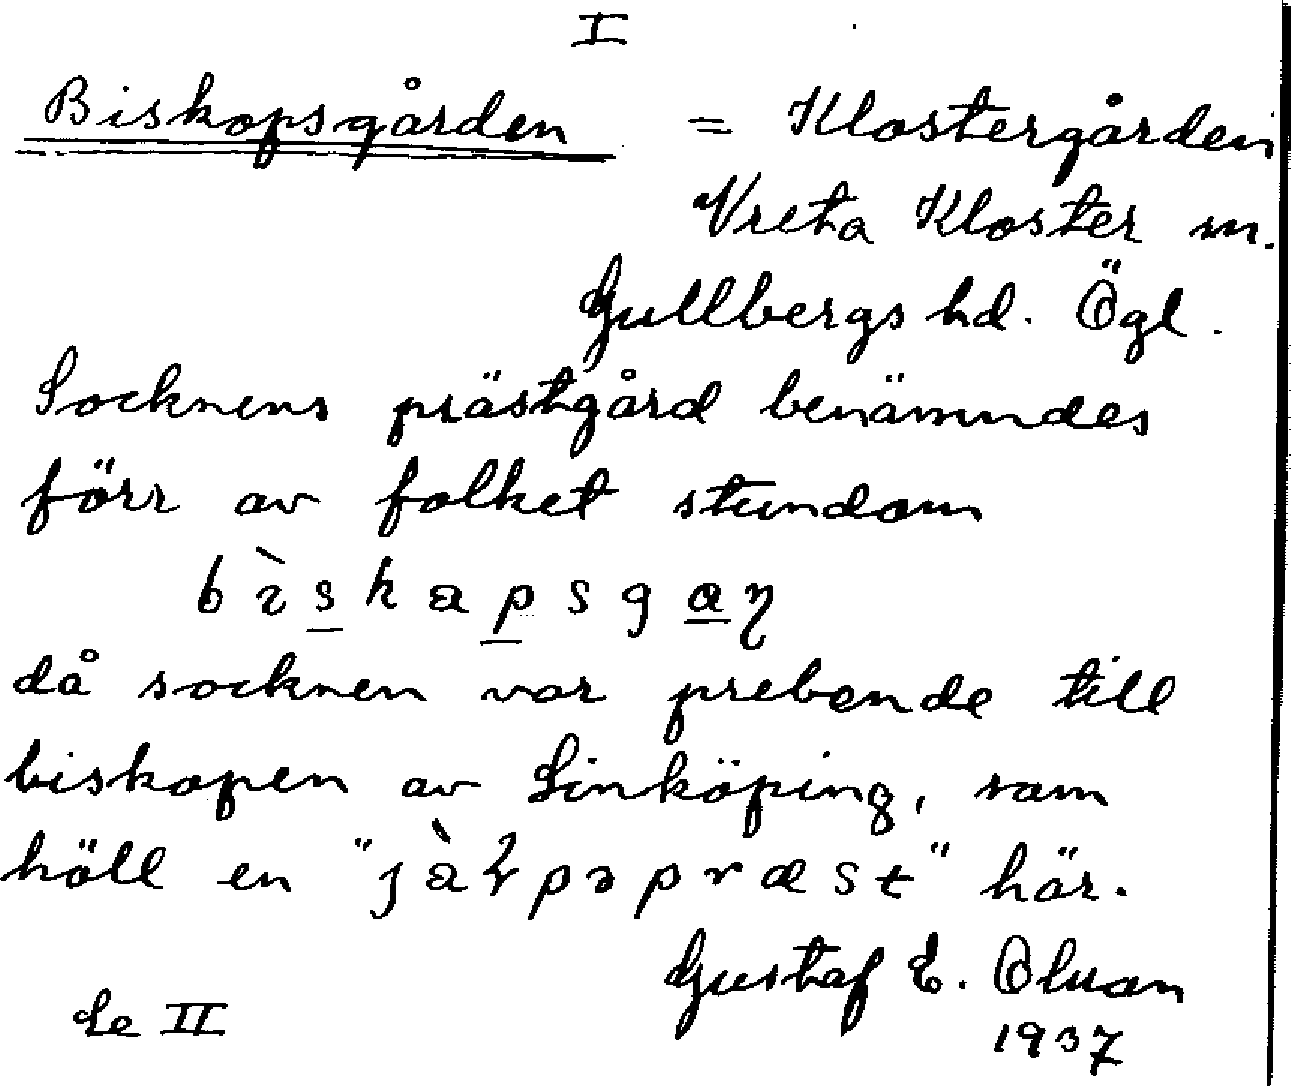 I
Biskopsgården = Klostergården
Vreta Kloster sn.
Gullbergs hd. Ögl.
Socknens prästgård benämndes
förr av folket stundom
då socknen var prebende till
biskopen av Linköping, som
höll en här.
Gustaf E. Olson
1937
Se II